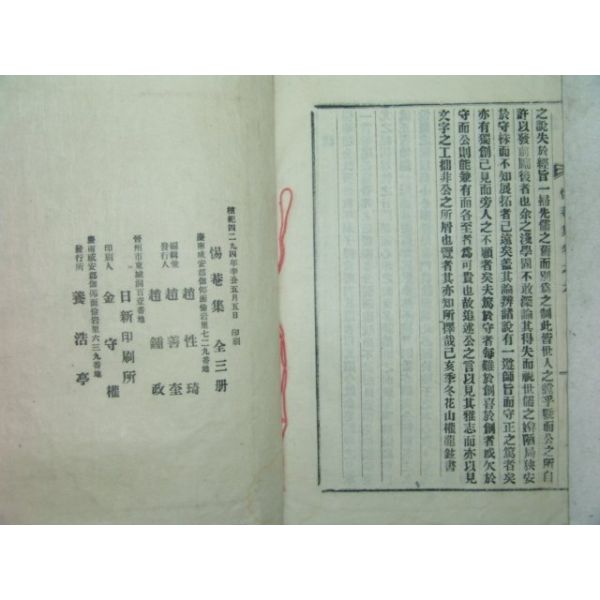 之說失於經旨一掃先儒之舊而別爲之制此皆世人之
許以發前賢後者也余之淺學固不敢深論其得失而視世儒之姝陋局狹安
於守株而不知展拓者已遠矣盖其論辨諸說有一遵師旨而守正之篤者矣
亦有獨創己見而旁人之不顧者矣夫篤於守者每難於創喜於創者或欠於
守而公則能兼有而各至者爲可貴也故追述公之言以見其雅志而亦以見
文字之工拙非公之所屑也覽者其亦知所擇哉己亥季冬花山權龍鉉書
檀紀四二九四年辛丑五月五日 印刷
惕菴集 全三册
慶南咸安郡伽倻面儉岩里七二九番地
編輯兼發行人 趙性琦 趙善奎 趙鍾政
晉州市東城洞百壹番地
日新印刷所
印刷人 金守權
慶南咸安郡伽倻面儉岩里六三九番地
發行所 養浩亭